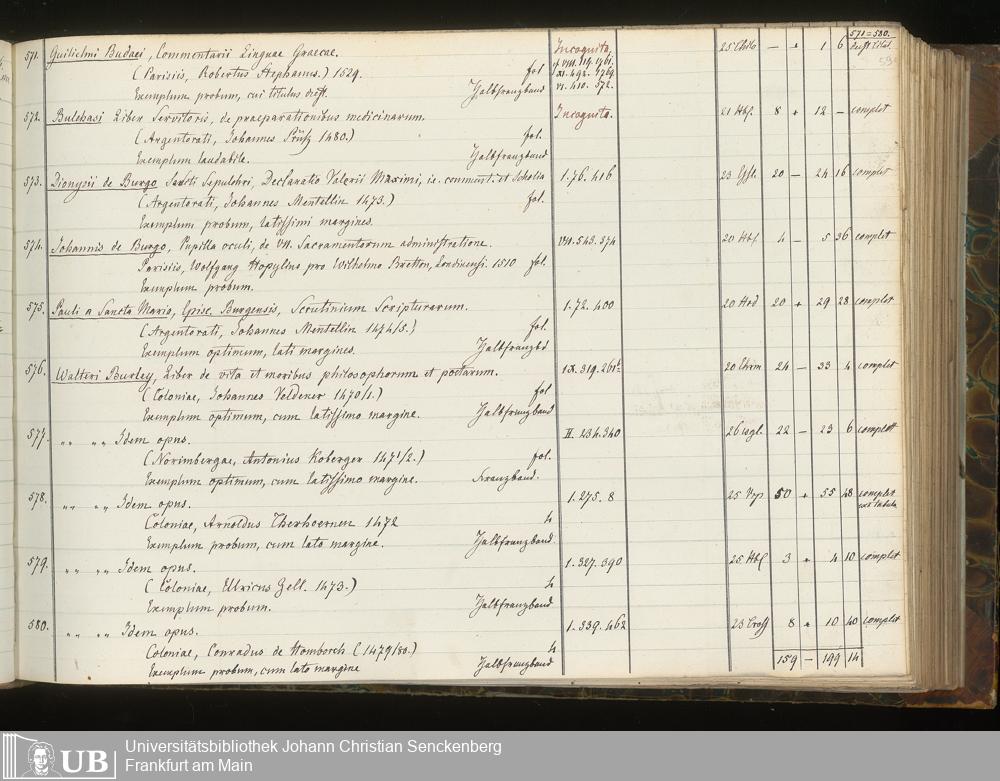 571=580.
571. Guilielmi Budaei, Commentarii Linguae Graecae. Incognita. 25 — 1 6
(Parisiis, Robertus Stephanus.) 1529. fol
Exemplum probum, cui titulus Halbfranzband VI. 410. 572.
572. Bulchasi Liber Servitoris, de praeparationibus medicinarum. Incognita. 21 Hbf. 8 + 12 — complet
(Argentorati, Johannes Prüss 1480.) fol.
Exemplum laudabile. Halbfranzband
573. Dionysii de Burgo Sancti Sepulchri, Declaratio Valerii Maximi, i.e. comment. et Scholia 1.76.416 23 20 — 24 16 complet
(Argentorati, Johannes Mentellin 1473.) fol.
Exemplum probum, latissimi margines.
574. Johannis de Burgo, Pupilla oculi, de VII. Sacramentorum administratione. VIII.543.374 20 Hbf 4 — 5 36 complet
Parisiis, Wolfgang Hopylius pro Wilhelmo Bretton, Londinensi. 1510 fol.
Exemplum probum.
575. Pauli a Sancta Maria, Episc. Burgensis, Scrutinium Scripturarum. 1.72.400 20 20 + 29 28 complet
(Argentorati, Johannes Mentellin 1474/5.) fol.
Exemplum optimum, lati margines. Halbfranzbd
576. Walteri Burley, Liber de vita et moribus philosophorum et poetarum. IX.319.261b 20 24 — 33 4 complet
(Coloniae, Johannes Veldener 1470/1.) fol
Exemplum optimum, cum latissimo margine. Halbfranzband
577. „ „ „ „ Idem opus. II. 234.340 26 22 — 23 6 complett
(Norimbergae, Antonius Koberger 1471/2.) fol.
Exemplum optimum, cum latissimo margine. Franzband.
578. „ „ „ „ Idem opus. 1.275.8 25 50 + 55 48 complet
Coloniae, Arnoldus Therhoernen 1472 4 exc. tabula
Exemplum probum, cum lato margine. Halbfranzband
579. „ „ „ „ Idem opus. 1.327.390 25 Hbf 3 + 4 10 complet
(Coloniae, Ulricus Zell. 1473.) 4
Exemplum probum. Halbfranzband
580. „ „ „ „ Idem opus. 1.339.462 23 8 + 10 40 complet
Coloniae, Conradus de Homborch (1479/80.) 4
Exemplum probum, cum lato margine Halbfranzband 159 — 199 14
UB
Universitätsbibliothek Johann Christian Senckenberg
Frankfurt am Main